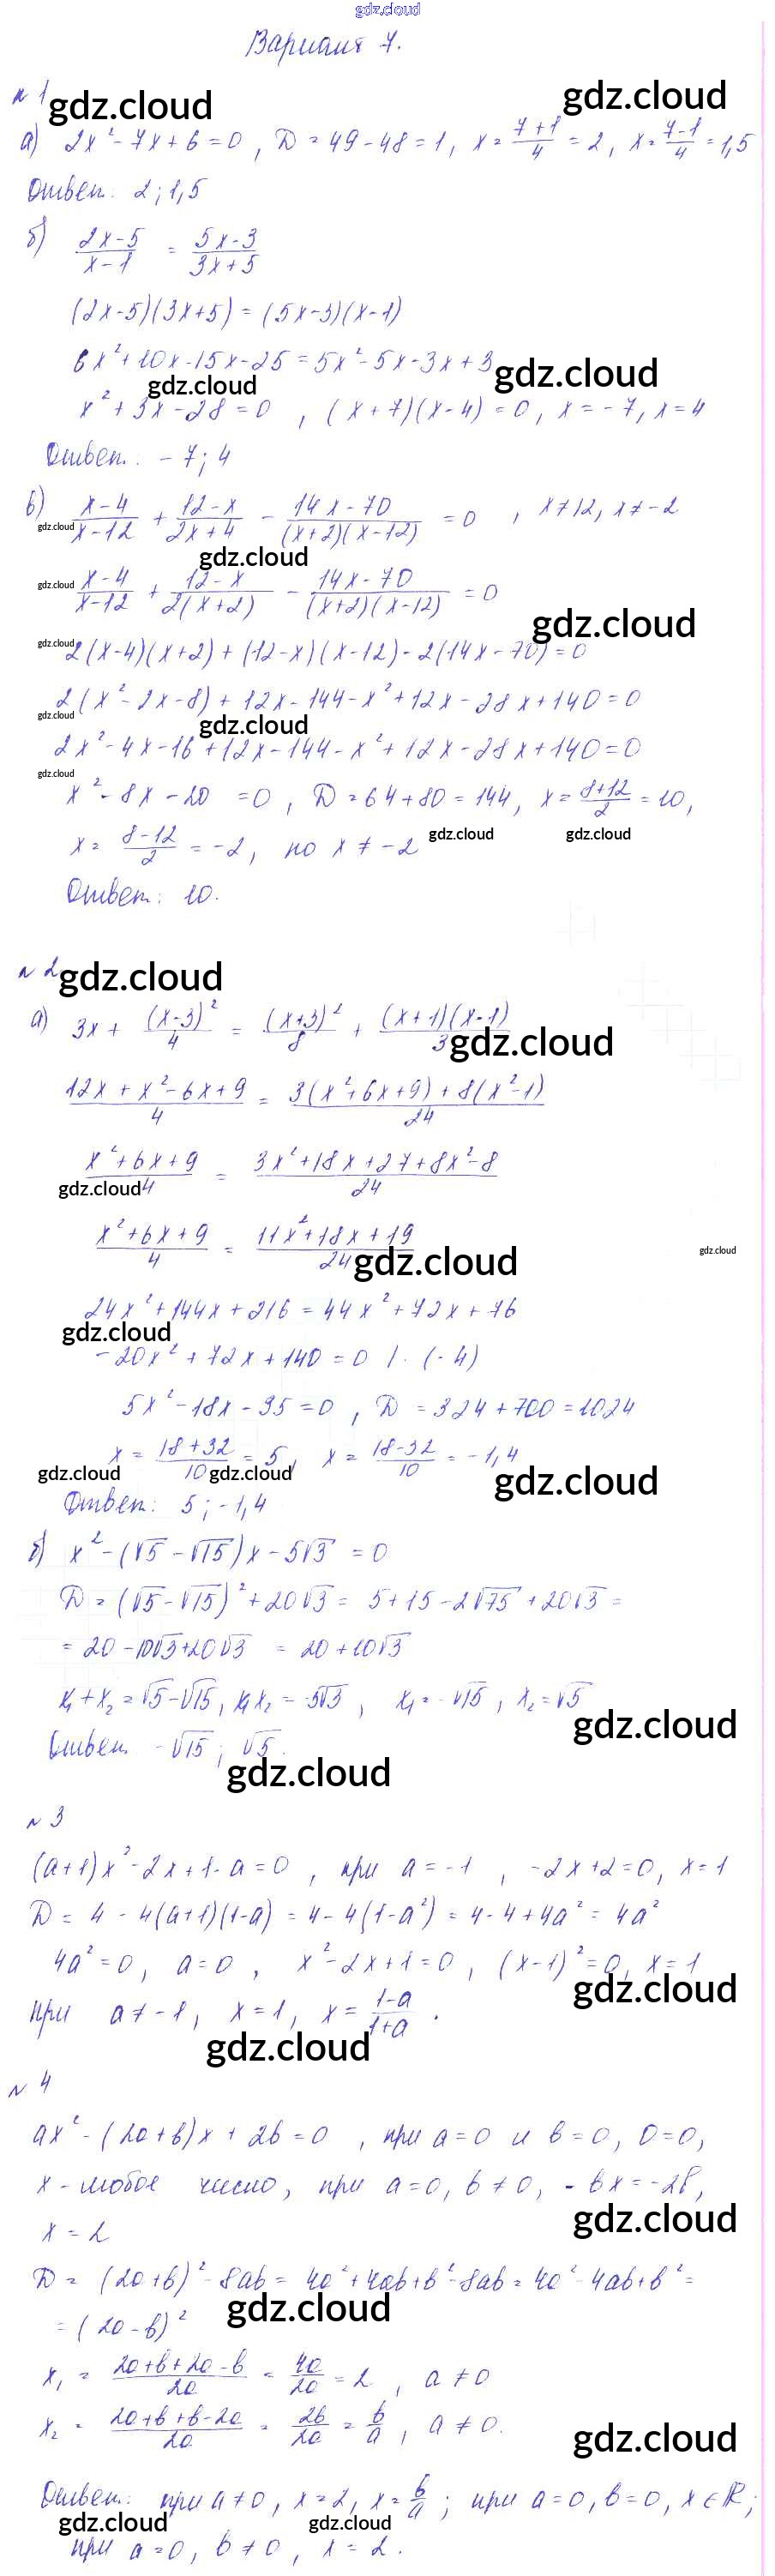 gdz.cloud
Вариант 7.
№ 1
gdz.cloud
gdz.cloud
а) 2x² - 7x + 6 = 0, D = 49 - 48 = 1, x = (7+1)/4 = 2, x = (7-1)/4 = 1,5
Ответ: 2; 1,5
б) (2x-5)/(x-1) = (5x-3)/(3x+5)
(2x-5)(3x+5) = (5x-3)(x-1)
6x² + 10x - 15x - 25 = 5x² - 5x - 3x + 3
gdz.cloud
gdz.cloud
x² + 3x - 28 = 0, (x+7)(x-4) = 0, x = -7, x = 4
Ответ: -7; 4
в) (x-4)/(x-12) + (12-x)/(2x+4) - (14x-70)/((x+2)(x-12)) = 0, x ≠ 12, x ≠ -2
gdz.cloud
gdz.cloud
gdz.cloud
(x-4)/(x-12) + (12-x)/(2(x+2)) - (14x-70)/((x+2)(x-12)) = 0
gdz.cloud
gdz.cloud
2(x-4)(x+2) + (12-x)(x-12) - 2(14x-70) = 0
2(x²-2x-8) + 12x - 144 - x² + 12x - 28x + 140 = 0
gdz.cloud
gdz.cloud
2x² - 4x - 16 + 12x - 144 - x² + 12x - 28x + 140 = 0
gdz.cloud
x² - 8x - 20 = 0, D = 64 + 80 = 144, x = (8+12)/2 = 10,
x = (8-12)/2 = -2, но x ≠ -2
gdz.cloud
gdz.cloud
Ответ: 10.
№ 2
gdz.cloud
а) 3x + (x-3)²/4 = (x+3)²/8 + (x+1)(x-1)/3
gdz.cloud
(12x + x² - 6x + 9)/4 = (3(x²+6x+9) + 8(x²-1))/24
(x²+6x+9)/4 = (3x²+18x+27+8x²-8)/24
gdz.cloud
(x²+6x+9)/4 = (11x²+18x+19)/24
gdz.cloud
gdz.cloud
24x² + 144x + 216 = 44x² + 72x + 76
gdz.cloud
-20x² + 72x + 140 = 0 | : (-4)
5x² - 18x - 35 = 0, D = 324 + 700 = 1024
x = (18+32)/10 = 5, x = (18-32)/10 = -1,4
gdz.cloud
gdz.cloud
gdz.cloud
Ответ: 5; -1,4
б) x² - (√5 - √15)x - 5√3 = 0
D = (√5 - √15)² + 20√3 = 5 + 15 - 2√75 + 20√3 =
= 20 - 10√3 + 20√3 = 20 + 10√3
x₁ + x₂ = √5 - √15, x₁x₂ = -5√3, x₁ = -√15, x₂ = √5
gdz.cloud
Ответ: -√15; √5.
gdz.cloud
№ 3
(a+1)x² - 2x + 1 - a = 0, при a = -1, -2x + 2 = 0, x = 1
D = 4 - 4(a+1)(1-a) = 4 - 4(1-a²) = 4 - 4 + 4a² = 4a²
4a² = 0, a = 0, x² - 2x + 1 = 0, (x-1)² = 0, x = 1
gdz.cloud
при a ≠ -1, x = 1, x = (1-a)/(1+a).
gdz.cloud
№ 4
ax² - (2a+b)x + 2b = 0, при a = 0 и b = 0, 0 = 0,
x - любое число, при a = 0, b ≠ 0, -bx = -2b,
gdz.cloud
x = 2
D = (2a+b)² - 8ab = 4a² + 4ab + b² - 8ab = 4a² - 4ab + b² =
gdz.cloud
= (2a-b)²
x₁ = (2a+b+2a-b)/2a = 4a/2a = 2, a ≠ 0
x₂ = (2a+b+b-2a)/2a = 2b/2a = b/a, a ≠ 0.
gdz.cloud
Ответ: при a ≠ 0, x = 2, x = b/a; при a = 0, b = 0, x ∈ R;
gdz.cloud
gdz.cloud
при a = 0, b ≠ 0, x = 2.